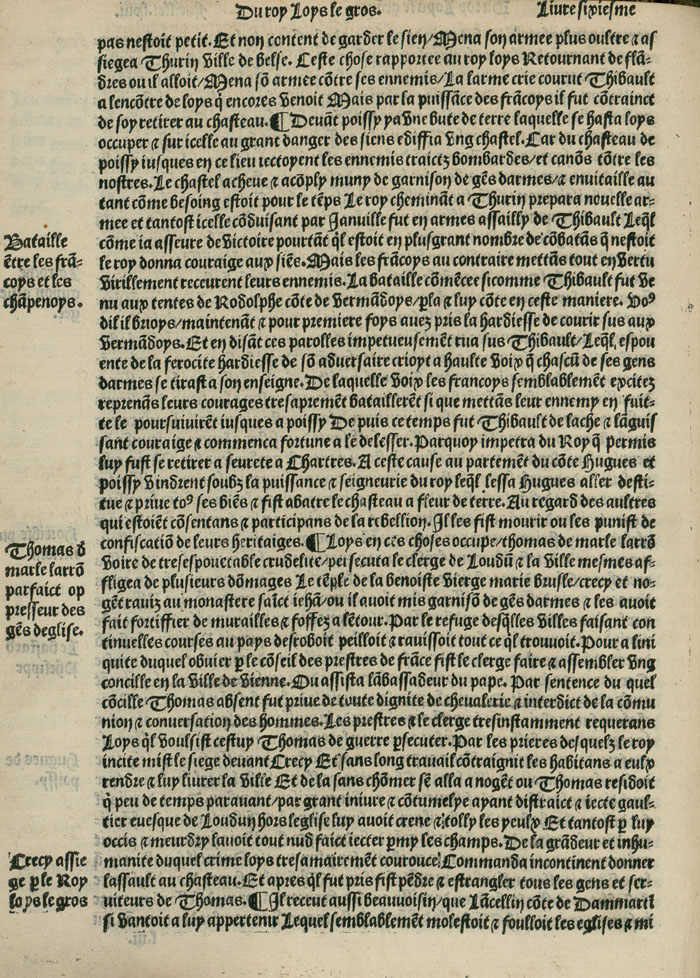 Du roy Loys le gros.
Livre sixiesme
pas nestoit petit. Et non content de garder le sien/Mena son armee plus oultre ⁊ as
siegea Thurin ville de belse. Ceste chose rapportee au roy loys Retournant de flā-
dres ou il alloit/Mena sō armee cōtre ses ennemis/La larme crie courut Thibault
a lencōtre de loys q̄ encores venoit Mais par la puissāce des frācoys il fut cōtrainct
de soy retirer au chasteau. ¶ Devāt poissy ya vne bute de terre laquelle se hasta loys
occuper ⁊ sur icelle au grant danger des siens ediffia vng chastel. Car du chasteau de
poissy iusques en ce lieu iectoyent les ennemis traictz bombardes/et canōs cōtre les
nostres. Le chastel acheue ⁊ acōply muny de garnison de gēs darmes/⁊ enuitaille au
tant cōme besoing estoit pour le tēps Le roy chemināt a Thurin prepara nouelle ar-
mee et tantost icelle cōduisant par Januille fut en armes assailly de Thibault Leq̄l
cōme ia asseure de victoire pourtāt q̄l estoit en plusgrant nombre de cōbatās q̄ nestoit
le roy donna couraige aux siēs. Mais les frācoys au contraire mettās tout en vertu
virillement receurent leurs ennemis. La bataille cōmēcee sicomme Thibault fut ve
nu aux tentes de Rodolphe cōte de vermādoys/pla a luy cōte en ceste maniere. vo⁹
dil il brioys/maintenāt ⁊ pour premiere foys auez pris la hardiesse de courir sus aux
vermādoys. Et en disāt ces parolles impetueusemēt rua sus Thibault/Leq̄l, espou
ente de la ferocite hardiesse de sō aduersaire crioyt a haulte voix q̄ chascū de ses gens
darmes se tirast a son enseigne. De laquelle voix les francoys semblablemēt excitez
reprenās leurs courages tresaprement bataillerēt si que mettās leur ennemy en fuit-
te le poursuiuirēt iusques a poissy De puis ce temps fut Thibault de lache ⁊ lāguis
sant couraige ⁊ commenca fortune a le delesser. Parquoy impetra du Roy q̄ permis
luy fust se retirer a seurete a Chartres. A ceste cause au partemēt du cōte Hugues et
poissy vindrent soubz la puissance ⁊ seigneurie du roy leq̄l lessa Hugues aller desti-
tue ⁊ priue to⁹ ses biēs ⁊ fist abatre le chasteau a fleur de terre. Au regard des aultres
qui estoiēt cōsentans ⁊ participans de la rebellion. Il les fist mourir ou les punist de
confiscatiō de leurs heritaiges. ¶ Loys en ces choses occupe/thomas de marle larrō
voire de tresespouetable crudelite/persecuta le clerge de Loudū ⁊ la ville mesmes af-
fligea de plusieurs dōmages Le tēple de la benoiste vierge marie brusle/crecy et no-
gēt rauiz au monastere saīct iehā/ou il auoit mis garnisō de gēs darmes ⁊ les auoit
fait fortiffier de murailles ⁊ fossez a lētour. Par le refuge desq̄lles villes faisant con
tinuelles courses au pays desroboit peilloit ⁊ rauissoit tout ce q̄l trouuoit. Pour a lini
quite duquel obuier p̄ le cōseil des prestres de frāce fist le clerge faire ⁊ assembler vng
concille en la ville de vienne. Ou assista lābassadeur du pape. Par sentence du quel
cōcille Thomas absent fut priue de toute dignite de cheualerie ⁊ interdict de la cōmu
nion ⁊ conuersation des hommes. Les prestres ⁊ le clerge tresinstamment requerans
Loys q̄l voulsist cestuy Thomas de guerre p̄secuter. Par les prieres desquelz le roy
incite mist le siege deuant Crecy Et sans long trauail cōtraignit les habitans a eulx
rendre ⁊ luy liurer la ville Et de la sans chōmer sē alla a nogēt ou Thomas residoit
q̄ peu de temps parauant/par grant iniure ⁊ cōtumelye ayant distraict ⁊ iecte gaul-
tier euesque de Loudun hors leglise luy auoit creue ⁊ tolly les yeulx Et tantost p̄ luy
occis ⁊ meurdry lauoit tout nud faict iecter p̄my les champs. De la grādeur et inhu-
manite duquel crime loys tresamairemēt courouce/Commanda incontinent donner
lassault au chasteau. Et apres q̄l fut pris fist pēdre ⁊ estrangler tous les gens et ser-
uiteurs de Thomas. ¶ Il receut aussi beauuoisin/que Lācellin cōte de Dammartī
si vantoit a luy appertenir Lequel semblablemēt molestoit ⁊ foulloit les eglises ⁊ mi
Bataille
ētre les frā-
coys et les
chāpenoys.
Thomas d̄
marle larrō
parfaict op
presseur des
gēs deglise.
Crecy assie
ge p̄ le Roy
loys le gros